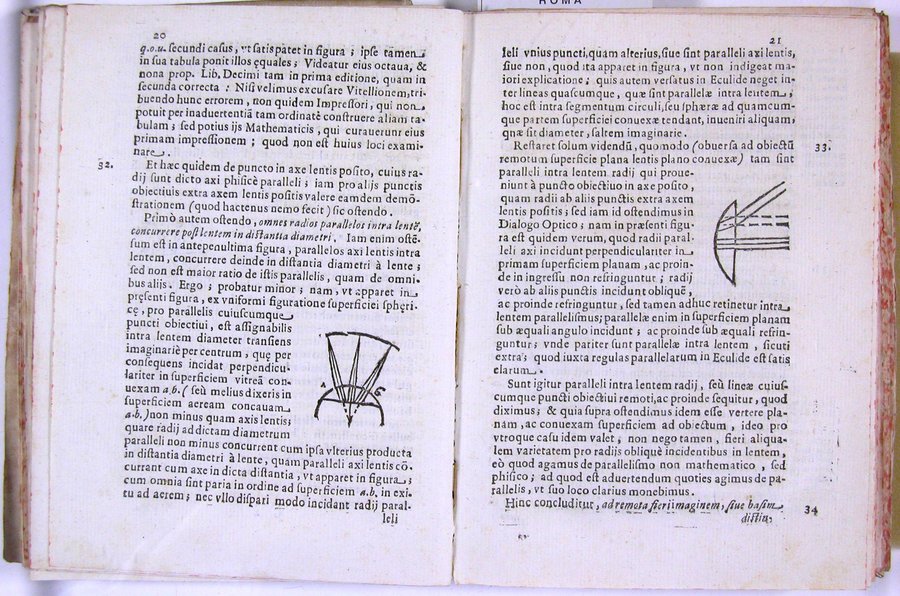 ROMA
20
q.o.u. secundi casus, vt satis pàtet in figura; ipse tamen
in sua tabula ponit illos ęquales; Videatur eius octaua, &
nona prop. Lib. Decimi tam in prima editione, quam in
secunda correcta: Nisi velimus excusare Vitellionem, tri-
buendo hunc errorem, non quidem Impressori, qui non
potuit per inaduertentiā tam ordinatè construere aliam ta-
bulam; sed potius ijs Mathematicis, qui curauerunt eius
primam impressionem; quod non est huius loci exami-
nare.
32.
Et hæc quidem de puncto in axe lentis posito, cuius ra-
dij sunt dicto axi phisicè paralleli; iam pro alijs punctis
obiectiuis extra axem lentis positis valere eamdem demō-
strationem (quod hactenus nemo fecit) sic ostendo.
Primò autem ostendo, omnes radios parallelos intra lentē,
concurrere post lentem in distantia diametri. Iam enim ostē-
sum est in antepenultima figura, parallelos axi lentis intra
lentem, concurrere deinde in distantia diametri à lente;
sed non est maior ratio de istis parallelis, quam de omni-
bus alijs. Ergo; probatur minor; nam, vt apparet in
pręsenti figura, ex vniformi figuratione superficiei sphęri-
cę, pro parallelis cuiuscumque
puncti obiectiui, est assignabilis
intra lentem diameter transiens
imaginariè per centrum, quę per
consequens incidat perpendicu-
lariter in superficiem vitreā con-
uexam a.b. (seù melius dixeris in
superficiem aeream concauam
a.b.) non minus quam axis lentis;
quare radij ad dictam diametrum
A
paralleli non minus concurrent cum ipsa vlterius producta
in distantia diametri à lente, quam paralleli axi lentis cō-
currant cum axe in dicta distantia, vt apparet in figura;
cum omnia sint paria in ordine ad superficiem a.b. in exi-
tu ad aerem; nec vllo dispari modo incidant radij paral-
leli
21
leli vnius puncti, quam alterius, siue sint paralleli axi lentis,
siue non, quod ita apparet in figura, vt non indigeat ma-
iori explicatione; quis autem versatus in Eculide neget in-
ter lineas quascumque, quæ sint parallelæ intra lentem,
hoc est intra segmentum circuli, seu sphæræ ad quamcum-
que partem superficiei conuexæ tendant, inueniri aliquam,
quæ sit diameter, saltem imaginarie.
Restaret solum videndū, quomodo (obuersa ad obiectū
33.
remotum superficie plana lentis plano conuexæ) tam sint
paralleli intra lentem radij qui proue-
niunt à puncto obiectiuo in axe posito,
quam radij ab alijs punctis extra axem
lentis positis; sed iam id ostendimus in
Dialogo Optico; nam in præsenti figu-
ra est quidem verum, quod radij paral-
leli axi incidunt perpendiculariter in
primam superficiem planam, ac proin-
de in ingressu non refringuntur; radij
verò ab alijs punctis incidunt obliquè,
ac proinde refringuntur, sed tamen adhuc retinetur intra
lentem parallelismus; parallelæ enim in superficiem planam
sub æquali angulo incidunt; ac proinde sub æquali refrin-
guntur; vnde pariter sunt parallelæ intra lentem, sicuti
extra; quod iuxta regulas parallelarum in Eculide est satis
clarum.
Sunt igitur paralleli intra lentem radij, seù lineæ cuius-
cumque puncti obiectiui remoti, ac proinde sequitur, quod
diximus; & quia supra ostendimus idem esse vertere pla-
nam, ac conuexam superficiem ad obiectum, ideo pro
vtroque casu idem valet; non nego tamen, fieri aliqua-
lem varietatem pro radijs obliquè incidentibus in lentem,
eò quod agamus de parallelismo non mathematico, sed
phisico; ad quod est aduertendum quoties agimus de pa-
rallelis, vt suo loco clarius monebimus.
Hinc concluditur, ad remota fieri imaginem, siue basim
34
distin-